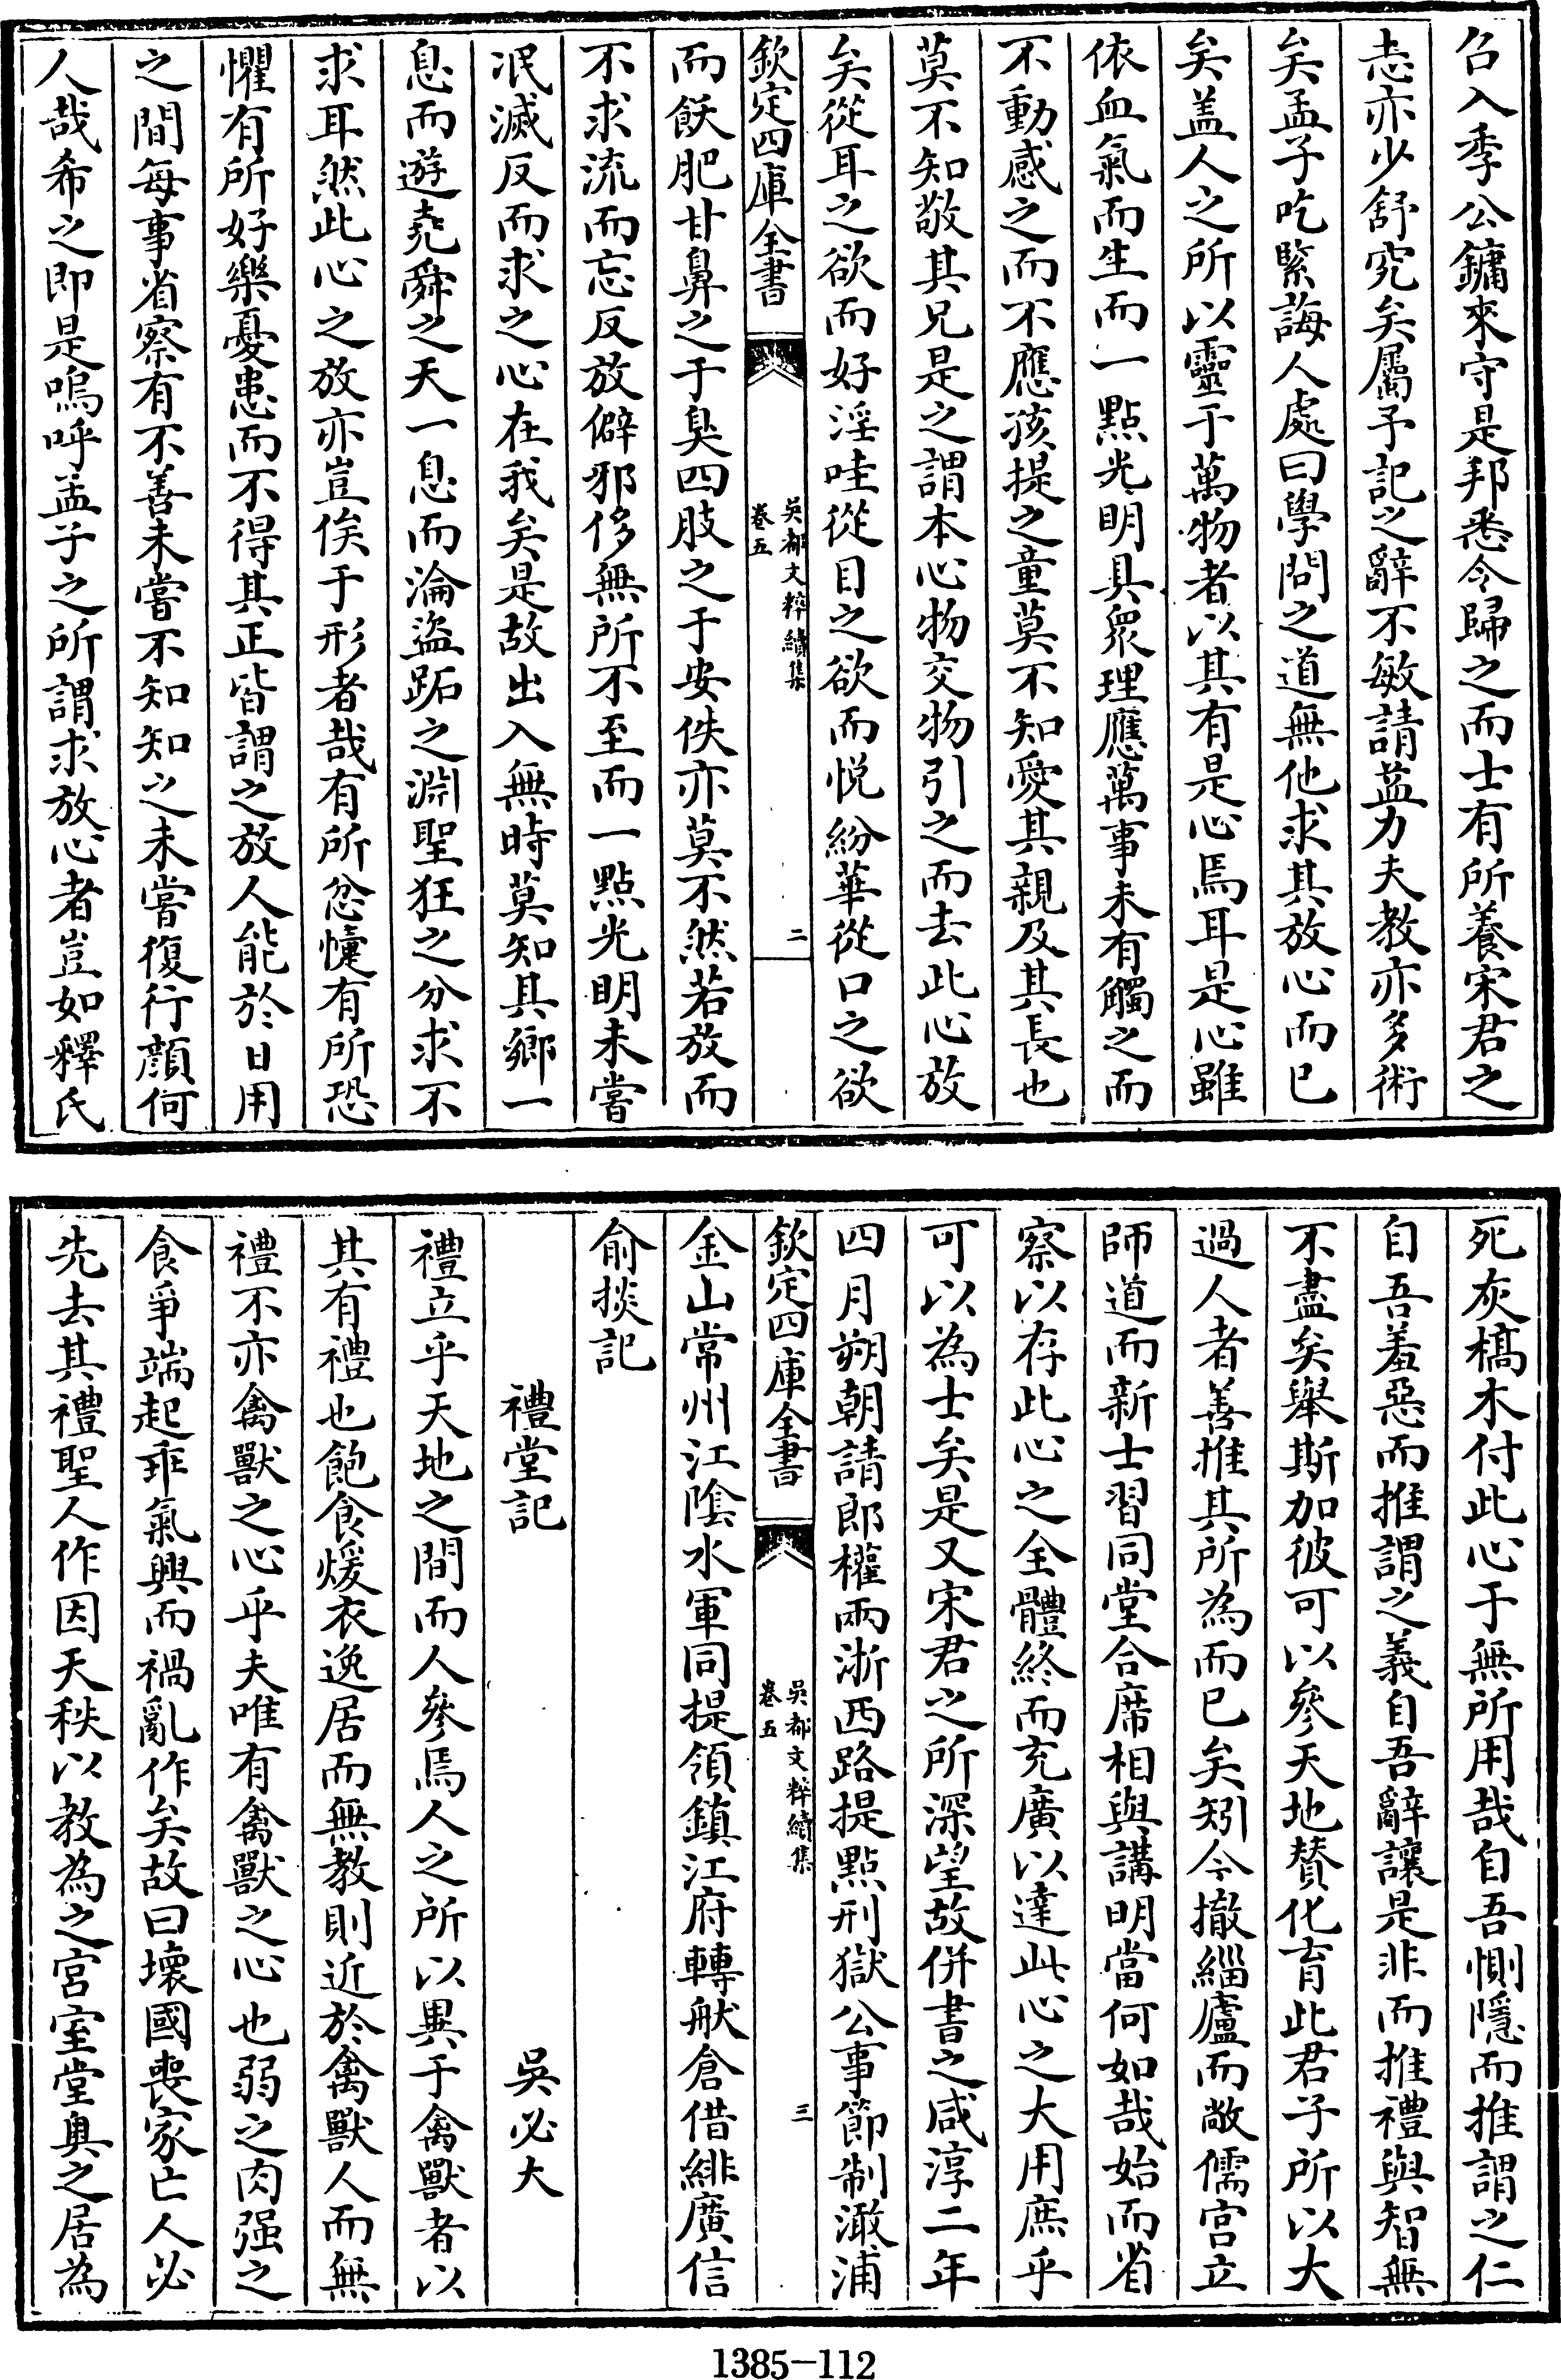 召入季公鏞來守是邦悉令歸之而士有所養宋君之
志亦少舒究矣屬予記之辭不敏請益力夫教亦多術
矣孟子吃緊誨人處曰學問之道無他求其放心而已
矣盖人之所以靈于萬物者以其有是心焉耳是心雖
依血氣而生而一點光明具衆理應萬事未有觸之而
不動感之而不應孩提之童莫不知愛其親及其長也
莫不知敬其兄是之謂本心物交物引之而去此心放
矣從耳之欲而好淫哇從目之欲而悦紛華從口之欲
欽定四庫全書
吳都文粹續集
卷五
二
而飫肥甘鼻之于臭四肢之于安佚亦莫不然若放而
不求流而忘反放僻邪侈無所不至而一點光明未嘗
泯滅反而求之心在我矣是故出入無時莫知其鄉一
息而遊堯舜之天一息而淪盜跖之淵聖狂之分求不
求耳然此心之放亦豈俟于形者哉有所忿懥有所恐
懼有所好樂憂患而不得其正皆謂之放人能於日用
之間每事省察有不善未嘗不知知之未嘗復行顔何
人哉希之即是嗚呼孟子之所謂求放心者豈如釋氏
死灰槁木付此心于無所用哉自吾惻隱而推謂之仁
自吾羞惡而推謂之義自吾辭讓是非而推禮與智無
不盡矣舉斯加彼可以參天地賛化育此君子所以大
過人者善推其所為而已矣矧今撤緇廬而敞儒宫立
師道而新士習同堂合席相與講明當何如哉始而省
察以存此心之全體終而充廣以達此心之大用庶乎
可以為士矣是又宋君之所深望故併書之咸淳二年
四月朔朝請郎權兩浙西路提點刑獄公事節制澉浦
欽定四庫全書
吳都文粹續集
卷五
三
金山常州江隂水軍同提領鎮江府轉般倉借緋廣信
俞掞記
禮堂記
吳必大
禮立乎天地之間而人參焉人之所以異于禽獸者以
其有禮也飽食煖衣逸居而無教則近於禽獸人而無
禮不亦禽獸之心乎夫唯有禽獸之心也弱之肉强之
食爭端起乖氣興而禍亂作矣故曰壞國喪家亡人必
先去其禮聖人作因天秩以教為之宫室堂奥之居為
1385-112